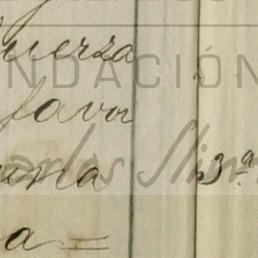 uerza
NDACIÓN
favor
arlos Slim
ana 3ª
a =